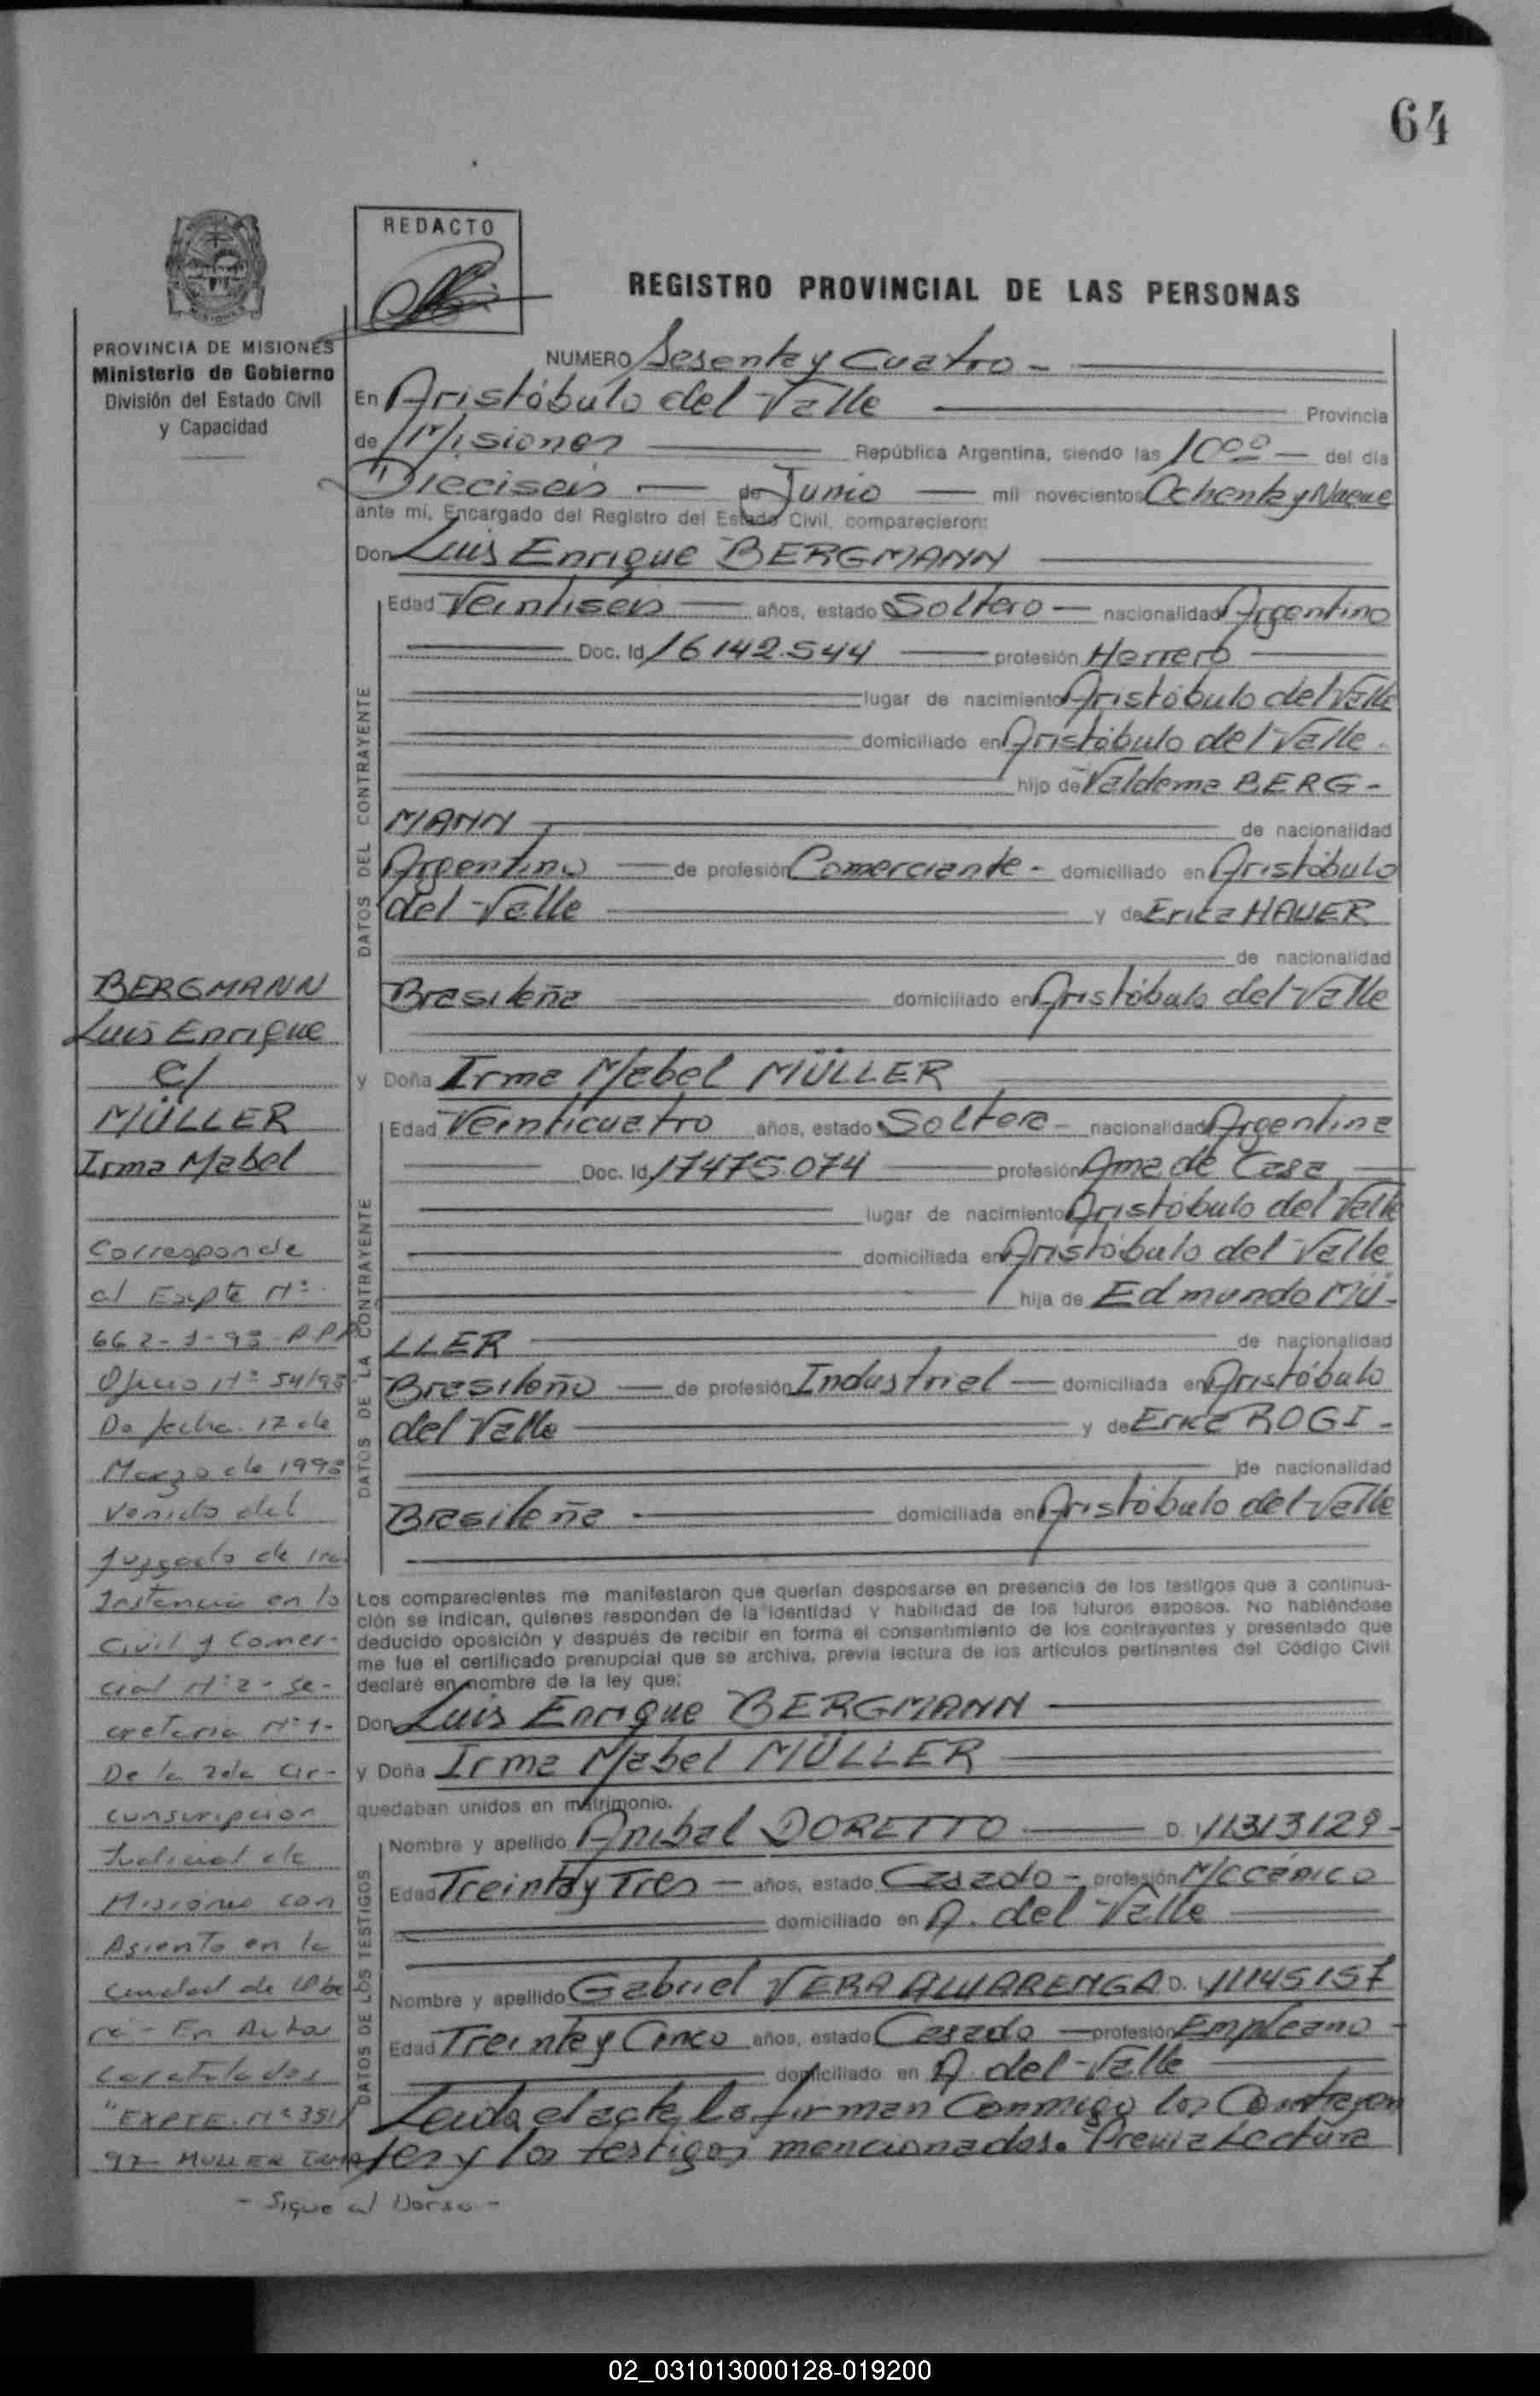 64
REDACTO
REGISTRO PROVINCIAL DE LAS PERSONAS
PROVINCIA DE MISIONES
Ministerio de Gobierno
División del Estado Civil
y Capacidad
NUMERO Sesenta y Cuatro -
En Aristóbulo del Valle Provincia
de Misiones República Argentina, siendo las 10:00 — del día
Dieciseis — de Junio — mil novecientos Ochenta y Nueve
ante mí, Encargado del Registro del Estado Civil, comparecieron:
Don Luis Enrique BERGMANN
Edad Veintiseis — años, estado Soltero — nacionalidad Argentino
Doc. Id 16142.544 profesión Herrero
lugar de nacimiento Aristóbulo del Valle
domiciliado en Aristóbulo del Valle.
hijo de Valdema BERG-
MANN de nacionalidad
Argentino — de profesión Comerciante - domiciliado en Aristóbulo
del Valle y de Erica HAUER
de nacionalidad
Brasileña domiciliado en Aristóbulo del Valle
DATOS DEL CONTRAYENTE
y Doña Irma Mabel MÜLLER
Edad Veinticuatro años, estado Soltera - nacionalidad Argentina
Doc. Id 17475.074 profesión Ama de Casa
lugar de nacimiento Aristóbulo del Valle
domiciliada en Aristóbulo del Valle
hija de Edmundo MÜ-
LLER de nacionalidad
Brasileño — de profesión Industrial — domiciliada en Aristóbulo
del Valle y de Erica ROGI -
de nacionalidad
Brasileña domiciliada en Aristóbulo del Valle
DATOS DE LA CONTRAYENTE
Los comparecientes me manifestaron que querían desposarse en presencia de los testigos que a continua-
ción se indican, quienes responden de la identidad y habilidad de los futuros esposos. No habiéndose
deducido oposición y después de recibir en forma el consentimiento de los contrayentes y presentado que
me fue el certificado prenupcial que se archiva, previa lectura de los artículos pertinentes del Código Civil
declaré en nombre de la ley que:
Don Luis Enrique BERGMANN
y Doña Irma Mabel MÜLLER
quedaban unidos en matrimonio.
Nombre y apellido Anibal DORETTO D. I. 11313129-
Edad Treinta y Tres — años, estado Casado - profesión Mecánico
domiciliado en A. del Valle
Nombre y apellido Gabriel VERA ALVARENGA D. I. 11145157
Edad Treinta y Cinco años, estado Casado — profesión Empleano
domiciliado en A. del Valle
DATOS DE LOS TESTIGOS
Leida el acta, la firman Conmigo los Contrayen
tes y los testigos mencionados. Previa Lectura
BERGMANN
Luis Enrique
C/
MÜLLER
Irma Mabel
Corresponde
al Expte Nº
662-1-93-RPP
Oficio Nº 54/93
De fecha 17 de
Marzo de 1993
venido del
Juzgado de 1ra
Instancia en lo
Civil y Comer-
cial Nº 2 - Se-
cretaria Nº 1-
De la 2da Cir-
cunscripcion
Judicial de
Misiones con
Asiento en la
ciudad de Obe
rá - En Autos
Caratulados
"EXPTE. Nº 351/
92 MULLER IRMA
- Sigue al Dorso -
02_031013000128-019200